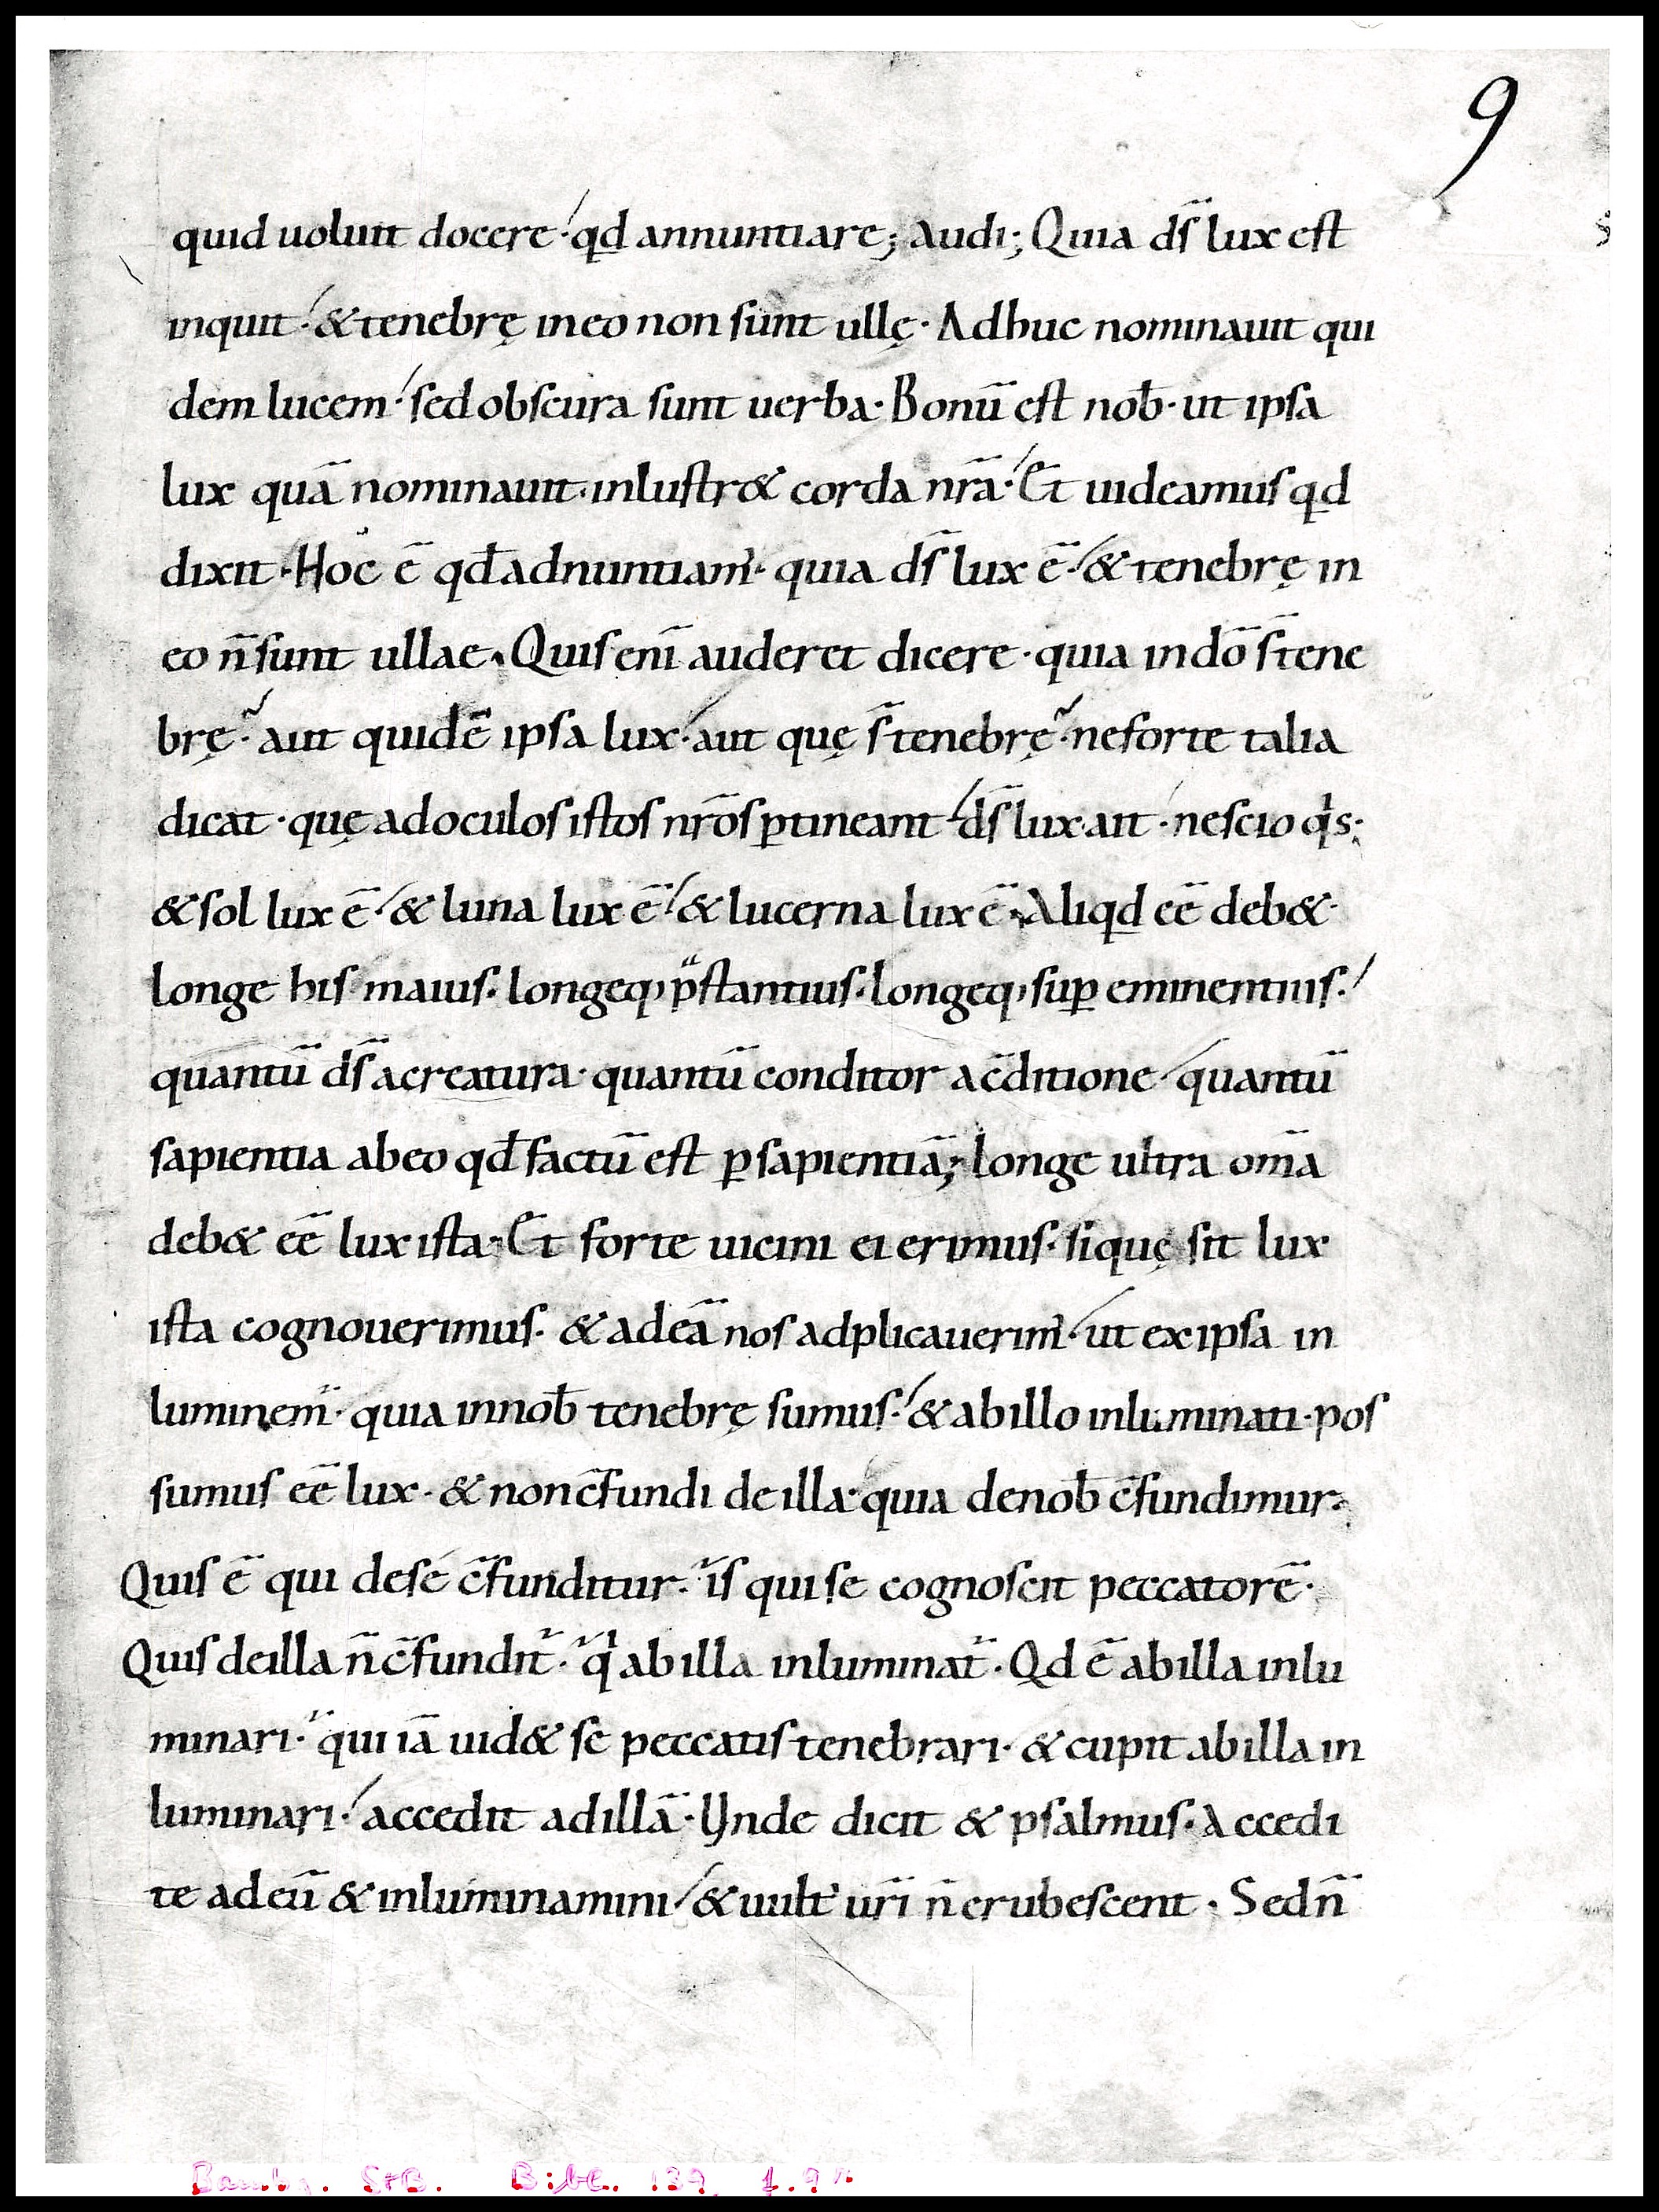 9
quid uoluit docere· qd annuntiare; Audi; Quia dſ̄ lux eſt
inquit· & tenebrę in eo non ſunt ullę· Adhuc nominauit qui
dem lucem· ſed obſcura ſunt uerba· Bonū eſt nob̄· ut ipſa
lux quā nominauit· inluſtr& corda nr̄a· Et uideamuſ qd
dixit· Hoc ē qd̄ adnuntiam᾽· quia dſ̄ lux ē· & tenebrę in
eo n̄ ſunt ullae· Quiſ eni̅ auderet dicere· quia in dō ſ̄ tene
brę· aut quid ē ipſa lux· aut quę ſ̄ tenebrę· ne forte talia
dicat· quę ad oculoſ iſtoſ nr̄oſ ꝑtineant· dſ̄ lux ait· neſcio qͥs·
& ſol lux ē· & luna lux ē· & lucerna lux ē· Aliqd eē deb&·
longe hiſ maiuſ· longeq; p̄ſtantiuſ· longeq; ſuꝑ eminentiuſ·
quantū dſ̄ a creatura· quantū conditor a c̄ditione· quantū
ſapientia ab eo qd̄ factū eſt ꝑ ſapientiā; longe ultra om̄a
deb& eē lux iſta· Et forte uicini ei erimuſ· ſi quę ſit lux
iſta cognouerimuſ· & ad eā noſ adplicauerim᾽· ut ex ipſa in
luminem᾽· quia in nob̄ tenebrę ſumuſ· & ab illo inluminati· poſ
ſumuſ eē lux· & non c̄fundi de illa· quia de nob̄ c̄fundimur·
Quiſ ē qui de ſe c̄funditur· iſ qui ſe cognoſcit peccatorē·
Quiſ de illa n̄ c̄fundit᾽· qͥ ab illa inluminat᾽· Qd ē ab illa inlu
minari· qui iā uid& ſe peccatiſ tenebrari· & cupit ab illa in
luminari· accedit ad illā· Unde dicit & pſalmuſ· Accedi
te ad eū & inluminamini· & uult᾽ ur̄i n̄ erubeſcent· Sed n̄
Bamb. StB. Bibl. 139, f.9r